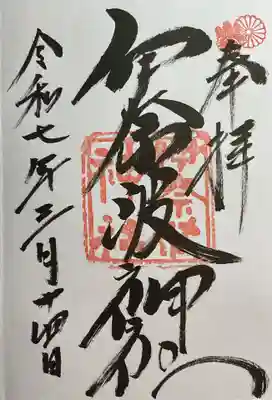 奉拝
伊奈波神社
令和七年三月十四日